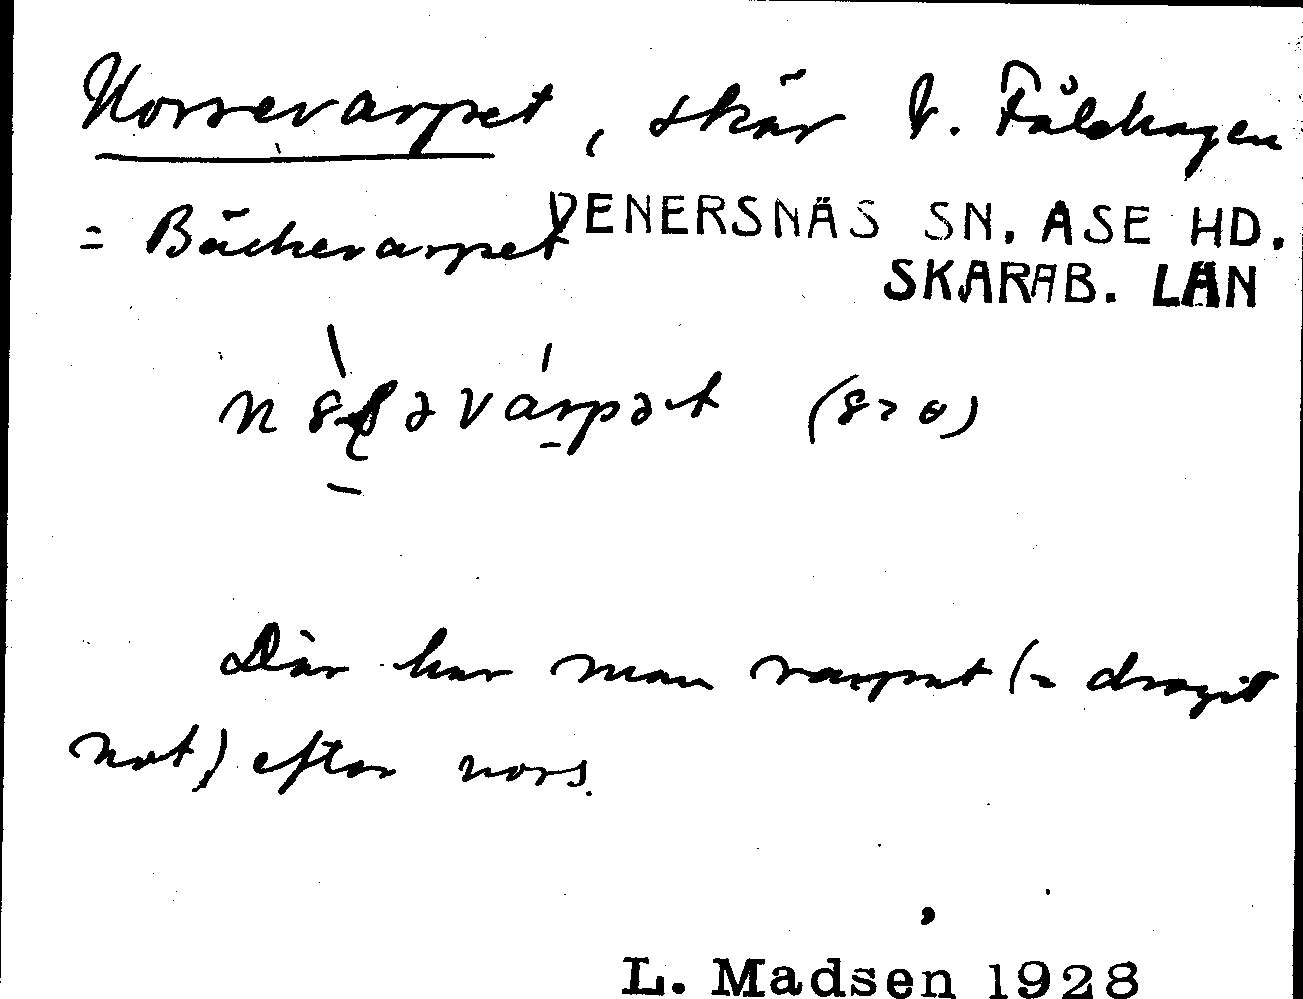 Norsevarpet, skär V. Fålehagen
= Bäckevarpet VENERSNÄS SN. ASE HD.
SKARAB. LÄN
Där har man varpat (= dragit
not) efter nors.
L. Madsen 1928